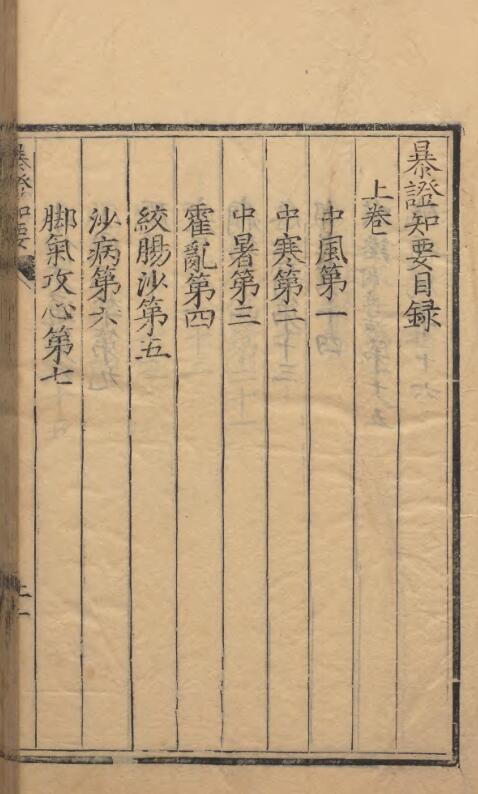 暴證知要目録
上卷
中風第一
中寒第二
中暑第三
霍亂第四
絞腸沙第五
沙病第六
脚氣攻心第七
暴證知要
上一